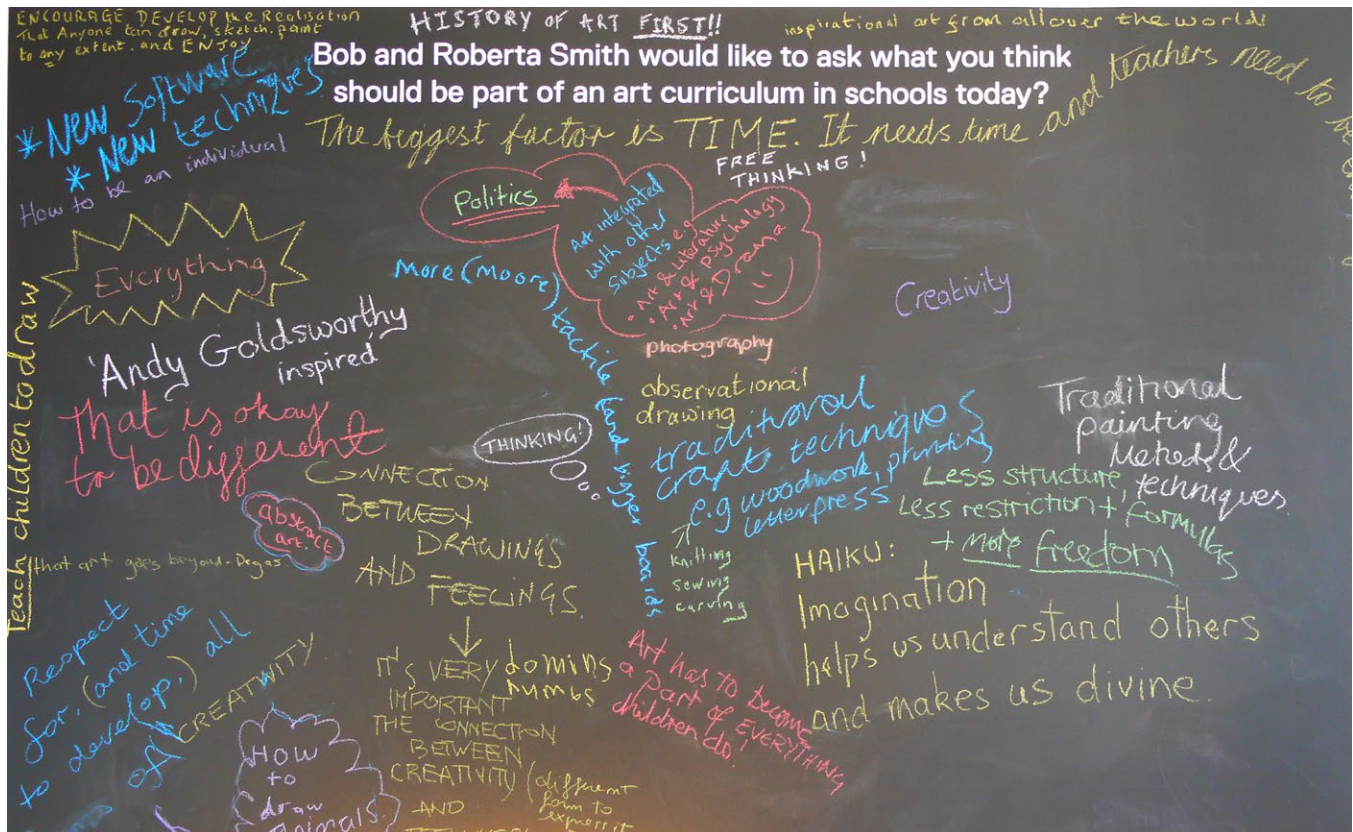 ENCOURAGE, DEVELOP the Realisation
That Anyone can draw, sketch, paint
to any extent. and ENJOY
HISTORY OF ART FIRST!!
inspirational art from all over the world!
Bob and Roberta Smith would like to ask what you think
should be part of an art curriculum in schools today?
* New Software
* New techniques
How to be an individual
The biggest factor is TIME. It needs time and teachers need to be
FREE
THINKING!
Politics
Art integrated
with other
subjects e.g
• Art & Literature
• Art & Psychology
• Art & Drama
Everything
More (Moore) tactile (and bigger
Creativity
'Andy Goldsworthy
inspired'
photography
observational
drawing
That is okay
to be different
THINKING!
traditional
craft techniques
e.g woodwork, printing
letterpress
knitting
sewing
carving
Traditional
painting
Methods &
techniques.
Less structure,
Less restriction + formulas
+ more freedom
Teach children to draw
abstract
art.
CONNECTION
BETWEEN
DRAWINGS
AND
FEELINGS
that art goes beyond. Degas
HAIKU:
Imagination
helps us understand others
and makes us divine.
Respect
for, (and time
to develop,) all
of CREATIVITY
IT'S VERY
IMPORTANT
THE CONNECTION
BETWEEN
CREATIVITY
AND
(different
form to
express it
Art has to become
a part of EVERYTHING
children do!
How
to
draw
animals.